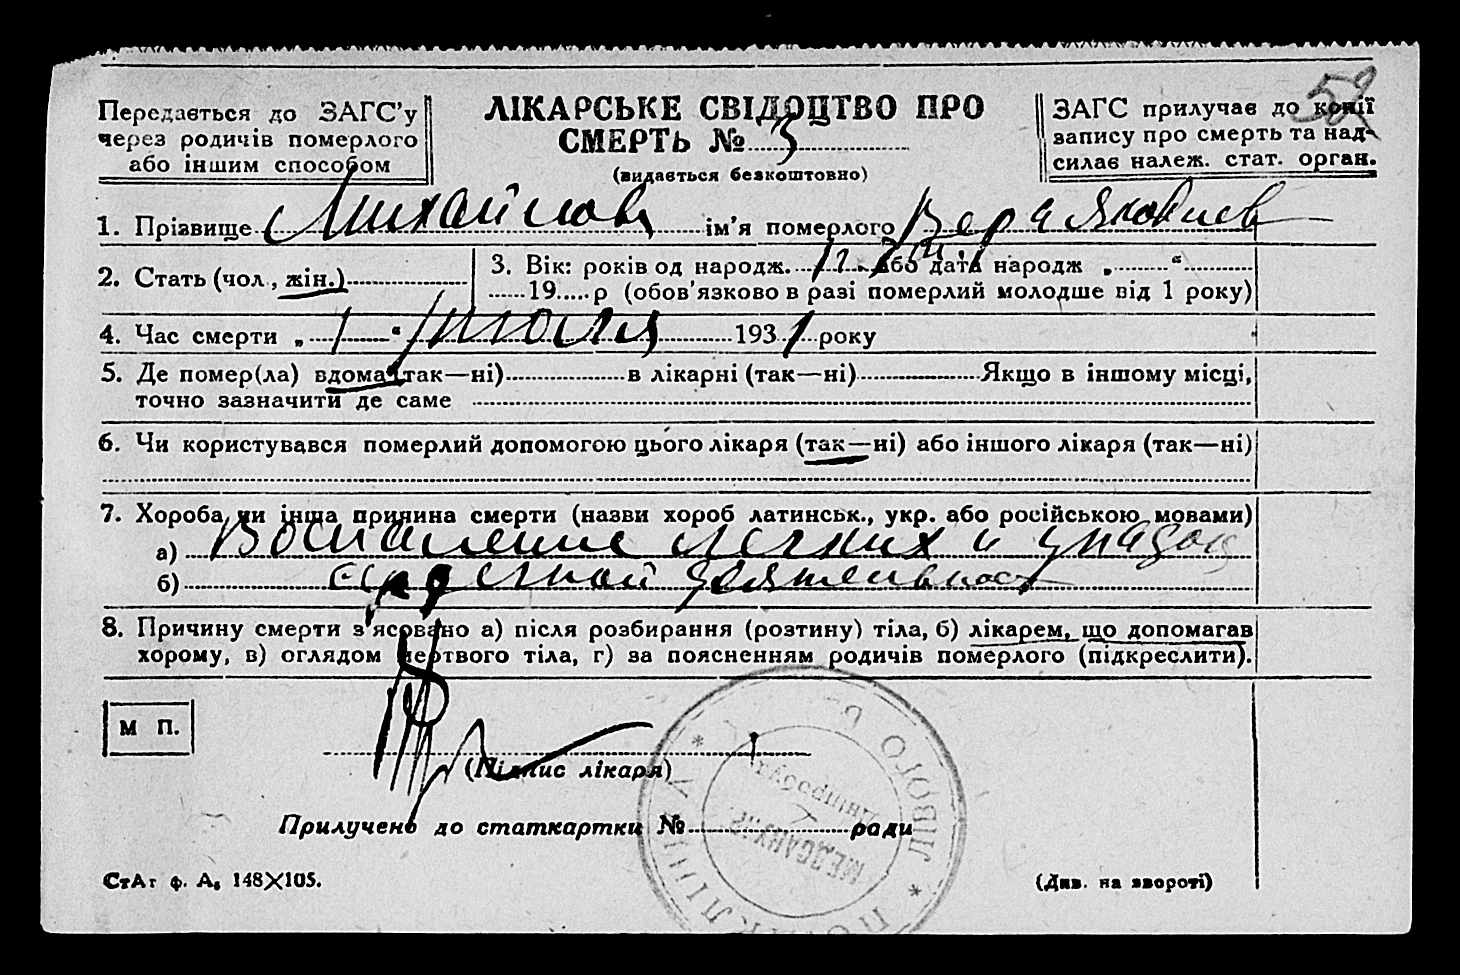 58
Передається до ЗАГС'у
через родичів померлого
або іншим способом
ЛІКАРСЬКЕ СВІДОЦТВО ПРО
СМЕРТЬ № 3
(видається безкоштовно)
ЗАГС прилучає до копії
запису про смерть та над-
силає належ. стат. орган.
1. Прізвище Михайлова ім'я померлого Вера Яковлев
2. Стать (чол., жін.)
3. Вік: років од народж. або дата народж „ “
19 р (обов'язково в разі померлий молодше від 1 року)
4. Час смерти „ 1 “ июля 1931 року
5. Де помер(ла) вдома (так—ні) в лікарні (так—ні) Якщо в іншому місці,
точно зазначити де саме
6. Чи користувався померлий допомогою цього лікаря (так—ні) або іншого лікаря (так—ні)
7. Хороба чи інша причина смерти (назви хороб латинськ., укр. або російською мовами)
а) Воспаление легких и упадок
б) сердечной деятельност
8. Причину смерти з'ясовано а) після розбирання (розтину) тіла, б) лікарем, що допомагав
хорому, в) оглядом мертвого тіла, г) за поясненням родичів померлого (підкреслити).
М П.
(Підпис лікаря)
Прилучено до статкартки № ради
СтАт ф. А₆ 148×105.
(Див. на звороті)
ПОЛІКЛІНІКА
МЕДСАНУ